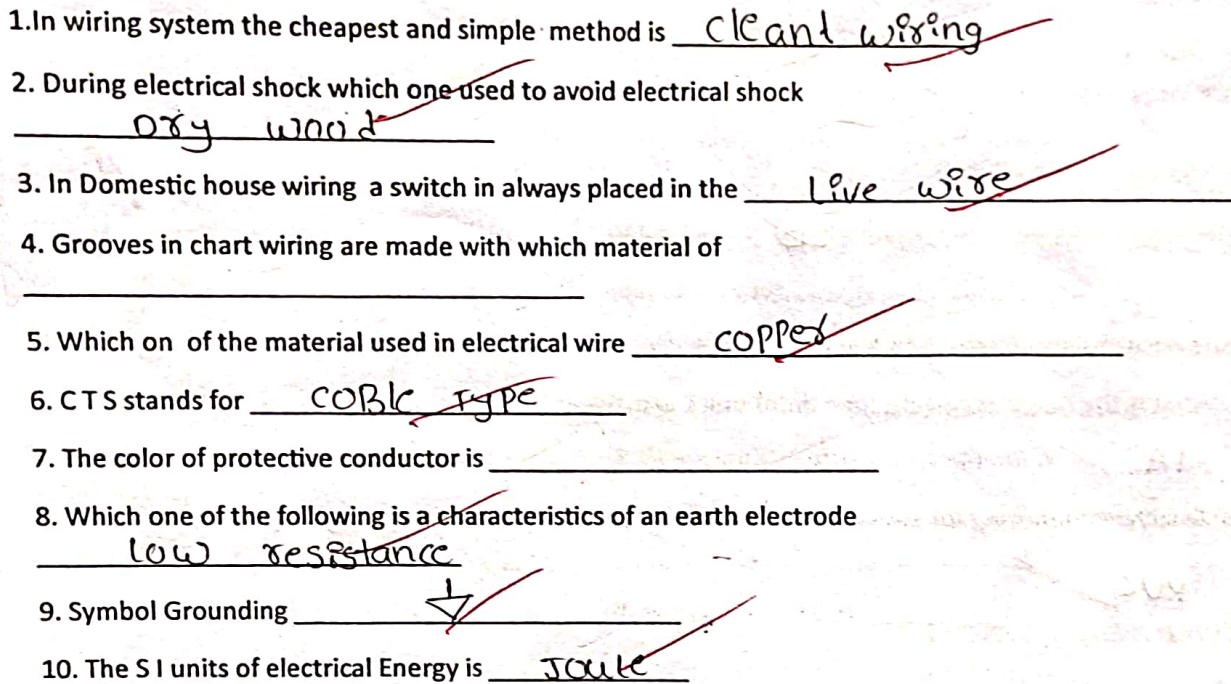 1.In wiring system the cheapest and simple method is cleant wiring
2. During electrical shock which one used to avoid electrical shock
Dry wood
3. In Domestic house wiring a switch in always placed in the Live wire
4. Grooves in chart wiring are made with which material of
5. Which on of the material used in electrical wire copper
6. C T S stands for COBle Type
7. The color of protective conductor is
8. Which one of the following is a characteristics of an earth electrode
low resistance
9. Symbol Grounding
10. The S I units of electrical Energy is Joule